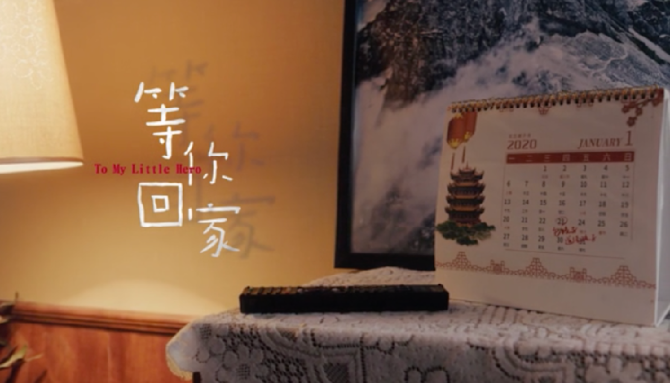 等你
To My Little Hero
回家
2020 JANUARY 1
一 二 三 四 五 六 日
1 2 3 4 5
6 7 8 9 10 11 12
13 14 15 16 17 18 19
20 21 22 23 24 25 26
27 28 29 30